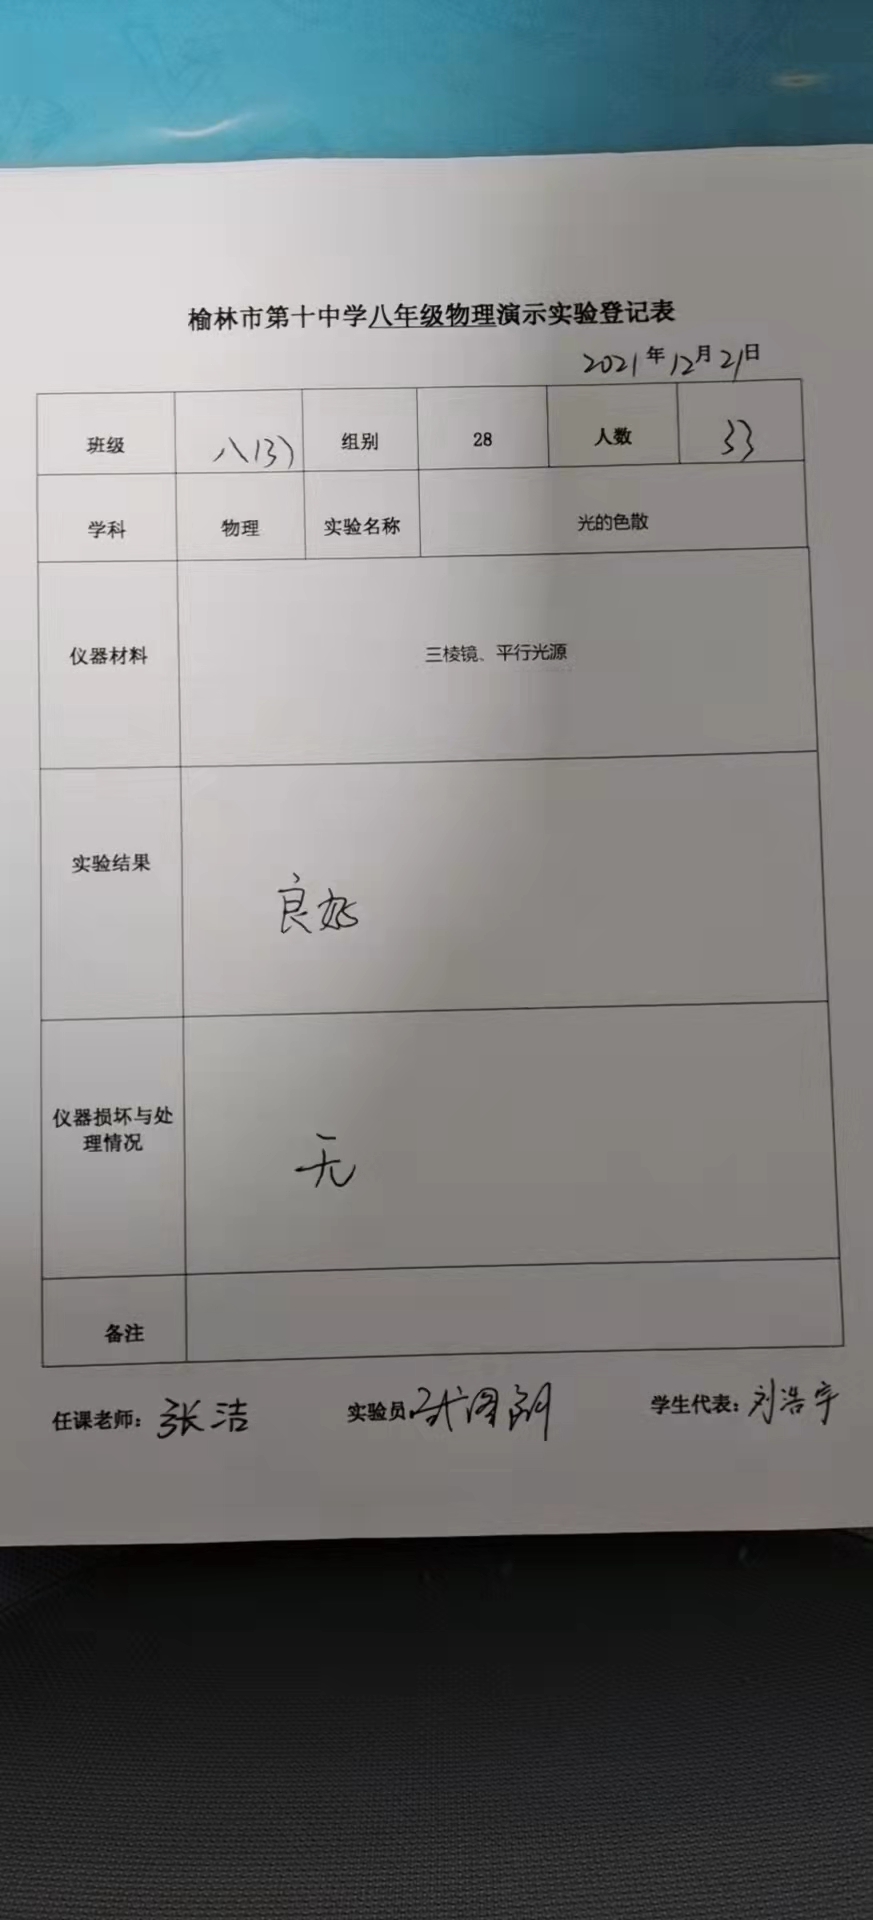 榆林市第十中学八年级物理演示实验登记表
2021年12月21日
班级 八(3) 组别 28 人数 33
学科 物理 实验名称 光的色散
仪器材料 三棱镜、平行光源
实验结果 良好
仪器损坏与处
理情况 无
备注
任课老师：张洁 实验员 学生代表：刘浩宇